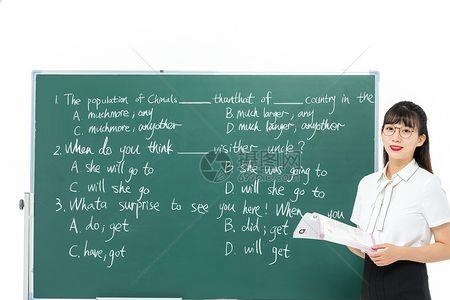 1. The population of Chinais ____ thanthat of ____ country in the
A. muchmore; any B. much larger; any
C. muchmore; anyother D. much larger; anyother
2. When do you think ____ visither uncle?
A. she will go to B. she was going to
C. will she go to D. will she go to
3. Whata surprise to see you here! When you
A. do; get B. did; get
C. have; got D. will get